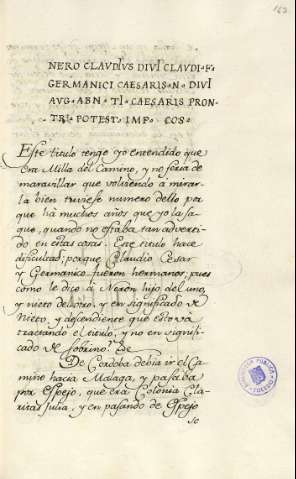 162.
NERO CLAUDIVS DIVI CLAUDI·F·
GERMANICI CAESARIS·N· DIVI
AVG·ABN· TI· CAESARIS PRON·
·TRI·POTEST·IMP· COS·
Este titulo tengo yo entendido que
era Milla del Camino, y no seria de
maravillar que volviendo a mirar
la bien tuviese numero dello por
que há muchos años que yo la sa
que, quando no estaba tan adverti
do en estas cosas. Este titulo hace
dificultad; porque Claudio Cesar
y Germanico fueron hermanos, pues
como le dice á Neron hijo del uno,
y nieto del otro, y en significado de
Nieto, y descendiente que esto va
tractando el titulo, y no en signifi
cado de sobrino.
De Cordoba debia ir el Ca
mino hacia Malaga, y pasaba
por Espejo, que era Colonia Cla
ritas Julia, y en pasando de Espejo
se